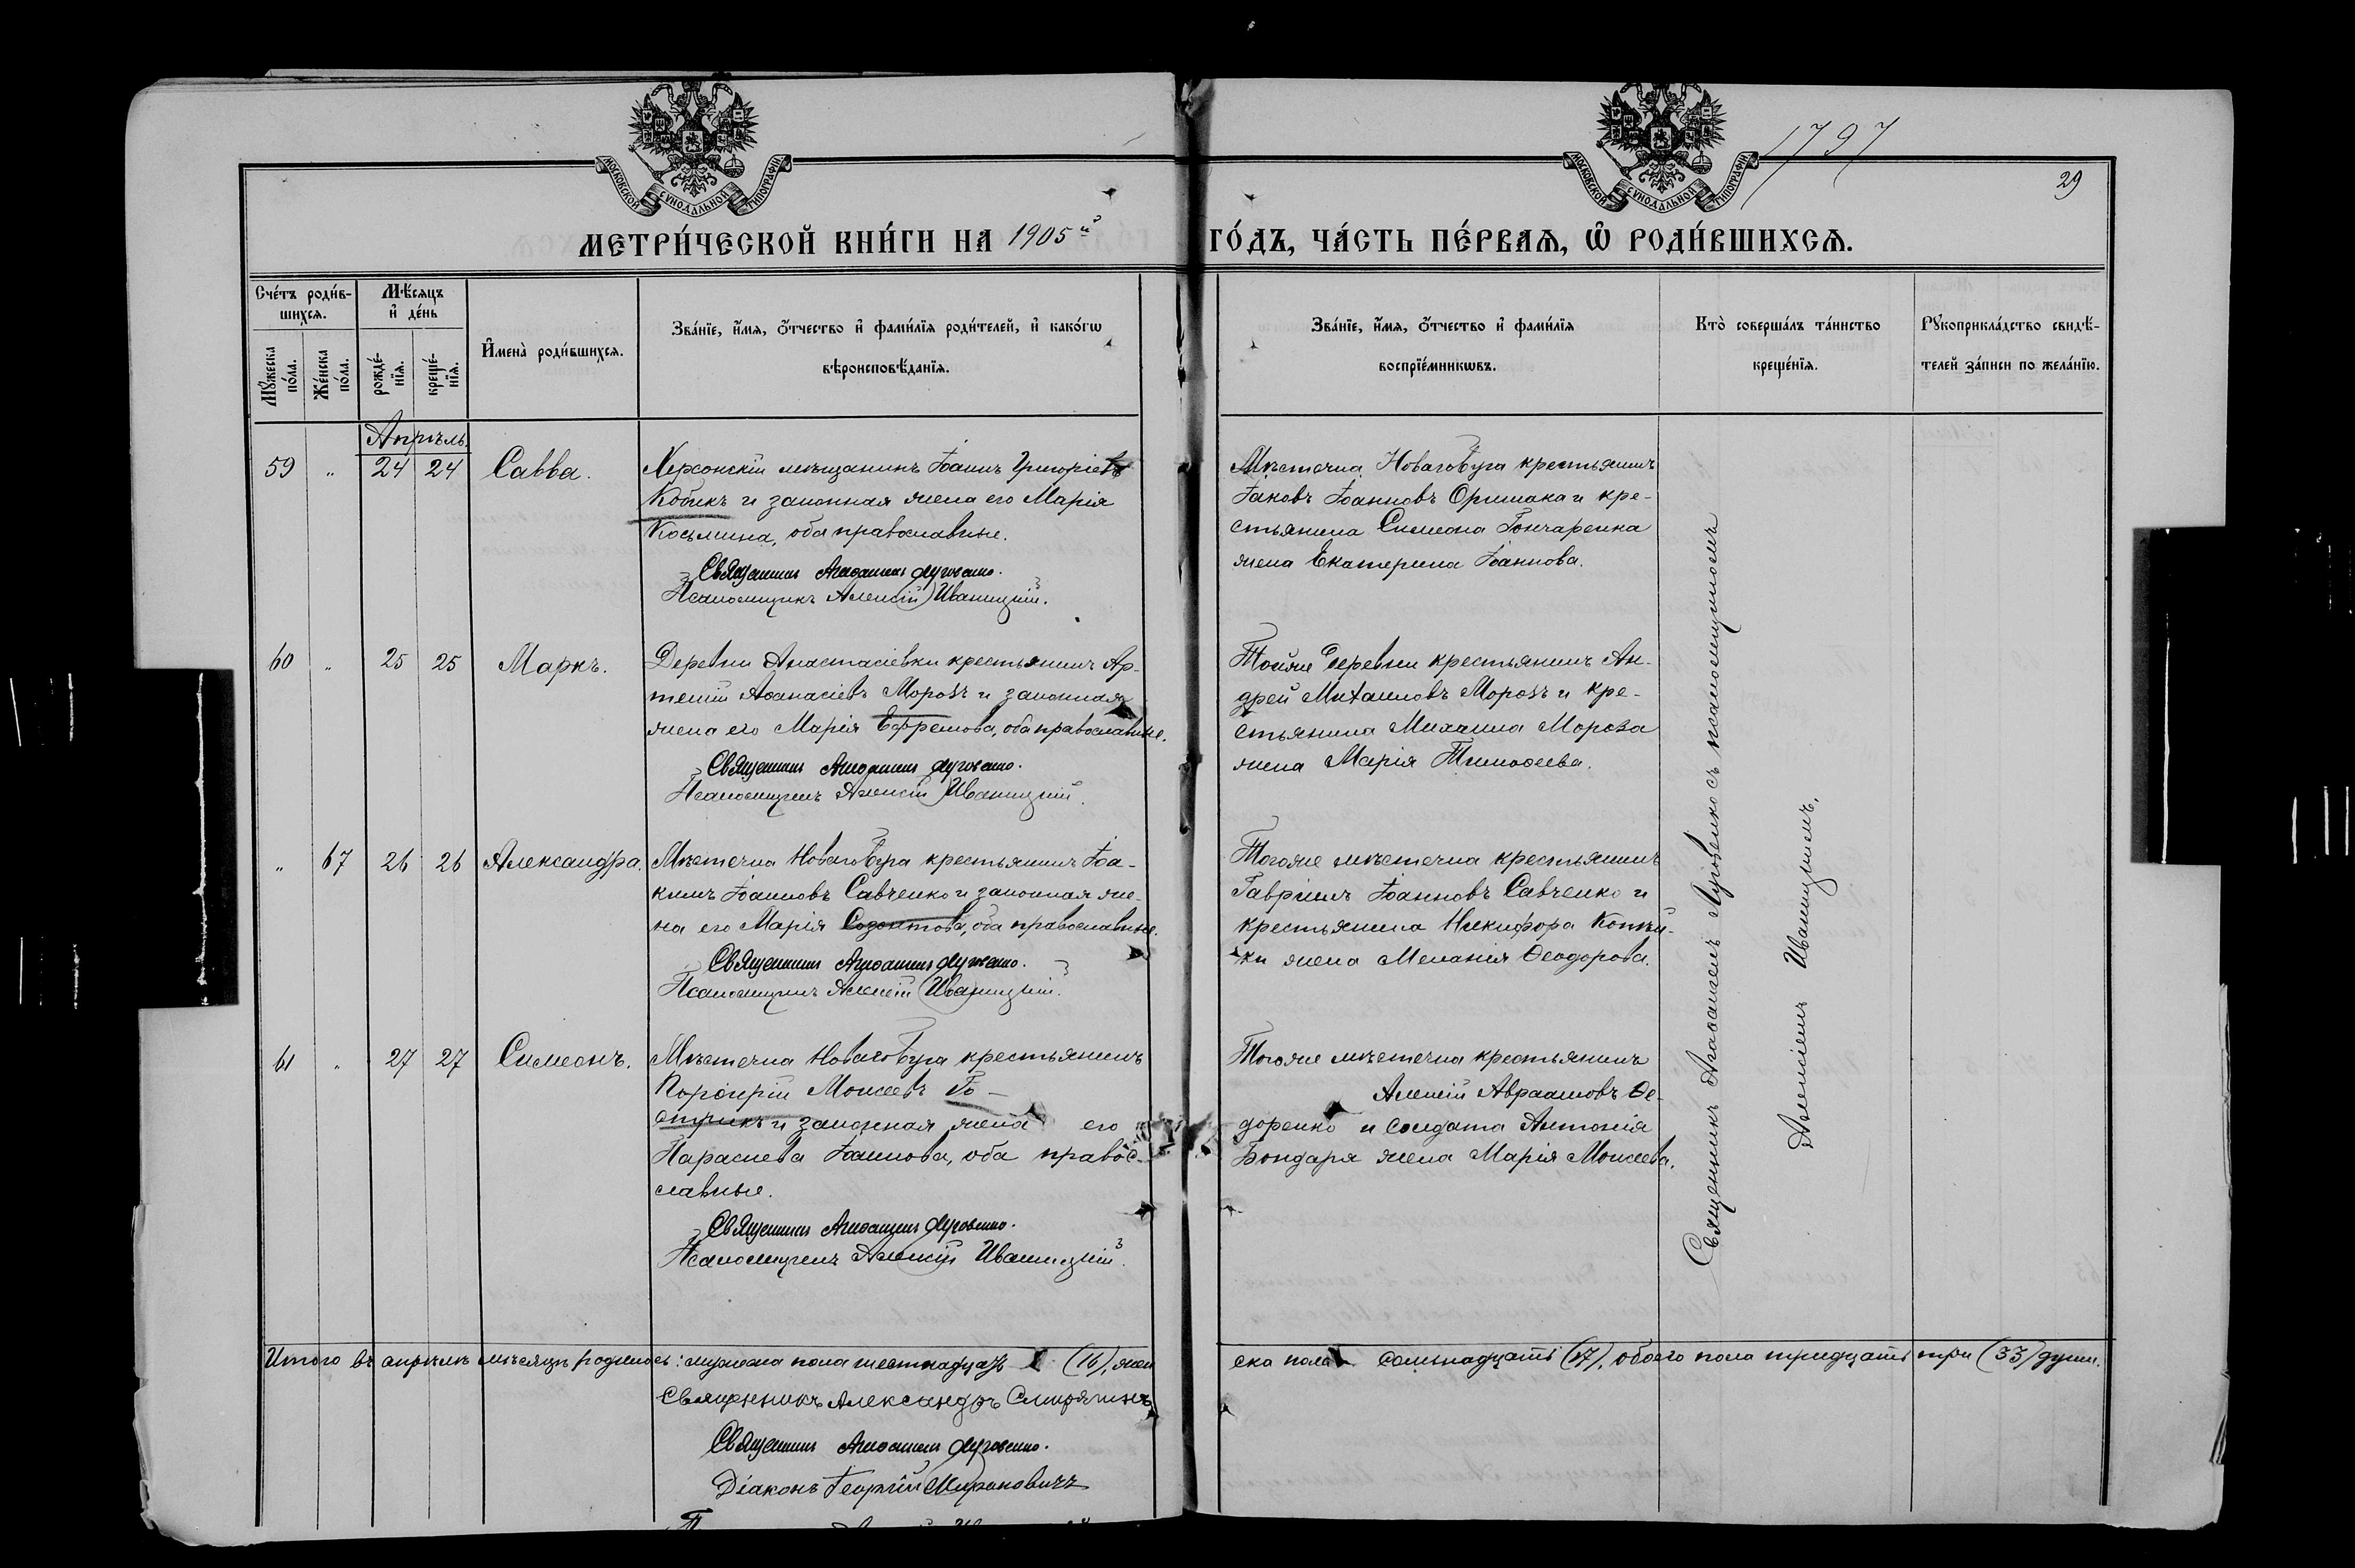 МОСКОВСКОЙ СѴНОДАЛЬНОЙ ТИПОГРАФІИ
МОСКОВСКОЙ СѴНОДАЛЬНОЙ ТИПОГРАФІИ
1797
29
МЕТРИ́ЧЕСКОЙ КНИ́ГИ НА 1905й ГО́ДЪ, ЧА́СТЬ ПЕ́РВАѦ, Ѽ РОДИ́ВШИХСѦ.
Сче́тъ роди́в-
шихсѧ.
Мꙋ́жеска по́ла.
Же́нска по́ла.
Мѣ́сѧцъ
и҆ де́нь
рожде́-
нїѧ.
креще́-
нїѧ.
И҆мена̀ роди́вшихсѧ.
Зва́нїе, и҆́мѧ, ѻ҆́тчество и҆ фами́лїѧ роди́телей, и҆ како́гѡ
вѣроисповѣ́данїѧ.
Зва́нїе, и҆́мѧ, ѻ҆́тчество и҆ фами́лїѧ
воспрїе́мникѡвъ.
Кто̀ соверша́лъ та́инство
креще́нїѧ.
Рꙋкоприкла́дство свидѣ́-
телей за́писи по жела́нїю.
Апрѣль.
59 " 24 24 Савва.
Херсонскій мѣщанинъ Іоаннъ Григоріевъ
Кобикъ и законная жена его Марія
Косьмина, оба православные.
Священникъ Агаѳангелъ Луговенко.
Псаломщикъ Алексій Иваницкій.
Мѣстечка Новагобуга крестьянинъ
Іаковъ Іоанновъ Оришака и кре-
стьянина Симеона Гончаренка
жена Екатерина Іоаннова.
60 " 25 25 Маркъ.
Деревни Анастасіевки крестьянинъ Ар-
темій Аѳанасіевъ Морозъ и законная
жена его Марія Ефремова, оба православные.
Священникъ Агаѳангелъ Луговенко.
Псаломщикъ Алексій Иваницкій.
Тойже деревни крестьянинъ Ан-
дрей Михаиловъ Морозъ и кре-
стьянина Михаила Мороза
жена Марія Тимоѳеева.
" 67 26 26 Александра.
Мѣстечка Новагобуга крестьянинъ Іоа-
кимъ Іоанновъ Савченко и законная же-
на его Марія Созонтова, оба православные.
Священникъ Агаѳангелъ Луговенко.
Псаломщикъ Алексій Иваницкій.
Тогоже мѣстечка крестьянинъ
Гавріилъ Іоанновъ Савченко и
крестьянина Никифора
жена Меланія Ѳеодорова.
61 " 27 27 Симеонъ.
Мѣстечка Новагобуга крестьянинъ
Порфирій Моисеевъ Го-
стрикъ и законная жена его
Параскева Іоаннова, оба право-
славные.
Священникъ Агаѳангелъ Луговенко.
Псаломщикъ Алексій Иваницкій.
Тогоже мѣстечка крестьянинъ
Алексій Авраамовъ Ѳе-
доренко и солдата Антонія
Бондаря жена Марія Моисеева.
Священникъ Агаѳангелъ Луговенко съ псаломщикомъ
Алексіемъ Иваницкимъ.
Итого въ апрѣлѣ мѣсяцѣ родилось: мужеска пола шестнадцать (16), жен
ска пола семьнадцать (17), обоего пола тридцать три (33) души.
Священникъ Александръ
Священникъ Агаѳангелъ Луговенко.
Діаконъ Георгій Мироновичъ